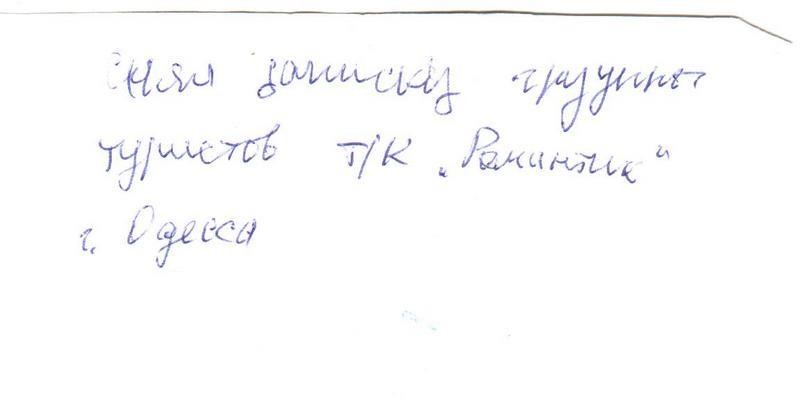 Снял записку группы
туристов т/к „Романтик"
г. Одесса